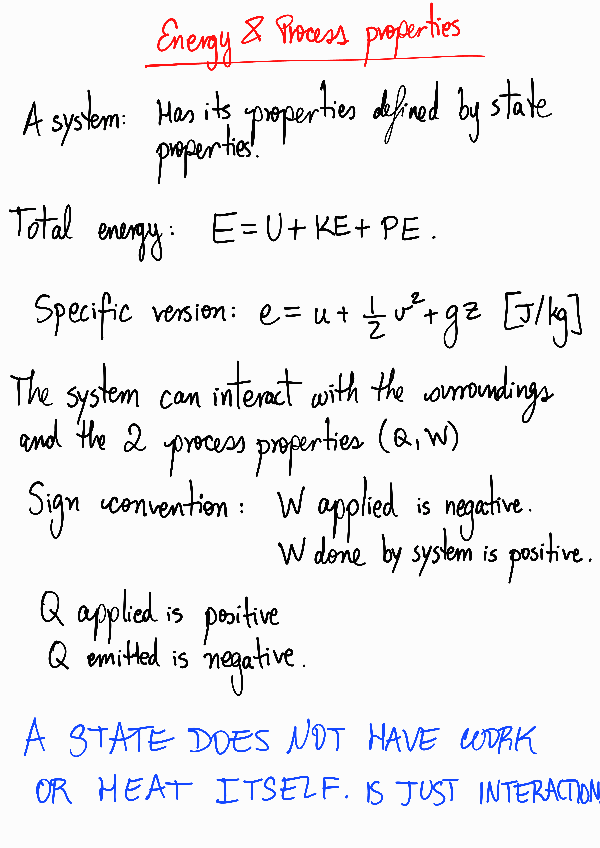 Energy & Process properties
A system: Has its properties defined by state
properties.
Total energy: E = U + KE + PE.
Specific version: e = u + 1/2 v² + gz [J/kg]
The system can interact with the surroundings
and the 2 process properties (Q, W)
Sign convention: W applied is negative.
W done by system is positive.
Q applied is positive
Q emitted is negative.
A STATE DOES NOT HAVE WORK
OR HEAT ITSELF. IS JUST INTERACTION